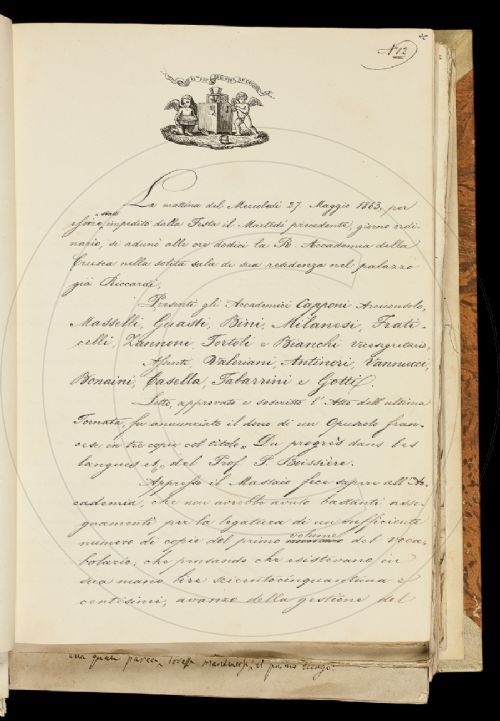 N° 12
La mattina del Mercoledì 27 Maggio 1863, per
essere stato impedito dalla Festa il Martedì precedente, giorno ordi-
nario, si adunò alle ore dodici la R. Accademia della
Crusca nella solita sala di sua residenza nel palazzo
già Riccardi.
Presenti gli Accademici Capponi Arciconsolo,
Masselli, Guasti, Bini, Milanesi, Frati-
celli, Zannoni, Tortoli e Bianchi vicesegretario,
Assenti, Valeriani, Antinori, Vannucci,
Bonaini, Casella, Tabarrini e Gotti.
Letto, approvato e soscritto l'Atto dell'ultima
Tornata, fu annunciato il dono di un Opuscolo fran-
cese in tre copie col titolo "Du progrès dans les
langues etc." del Prof. P. Boissière.
Appresso il Massaio fece sapere all'Ac-
cademia, che non avrebbe avuto bastanti asse-
gnamenti per la legatura di un sufficiente
numero di copie del primo volume del Voca-
bolario; che pensando che esistevano in
sua mano lire seicentocinquantuna e
centesimi, avanzo della gestione del